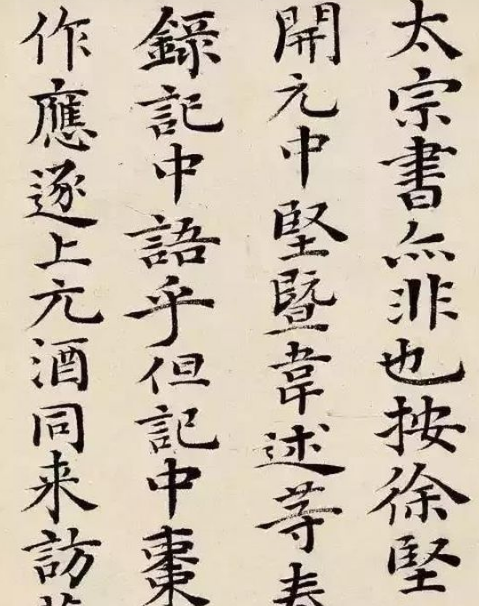 太宗書亦非也按徐堅
開元中堅曁韋述等奏
錄記中語乎但記中棗
作應逐上元酒同来訪